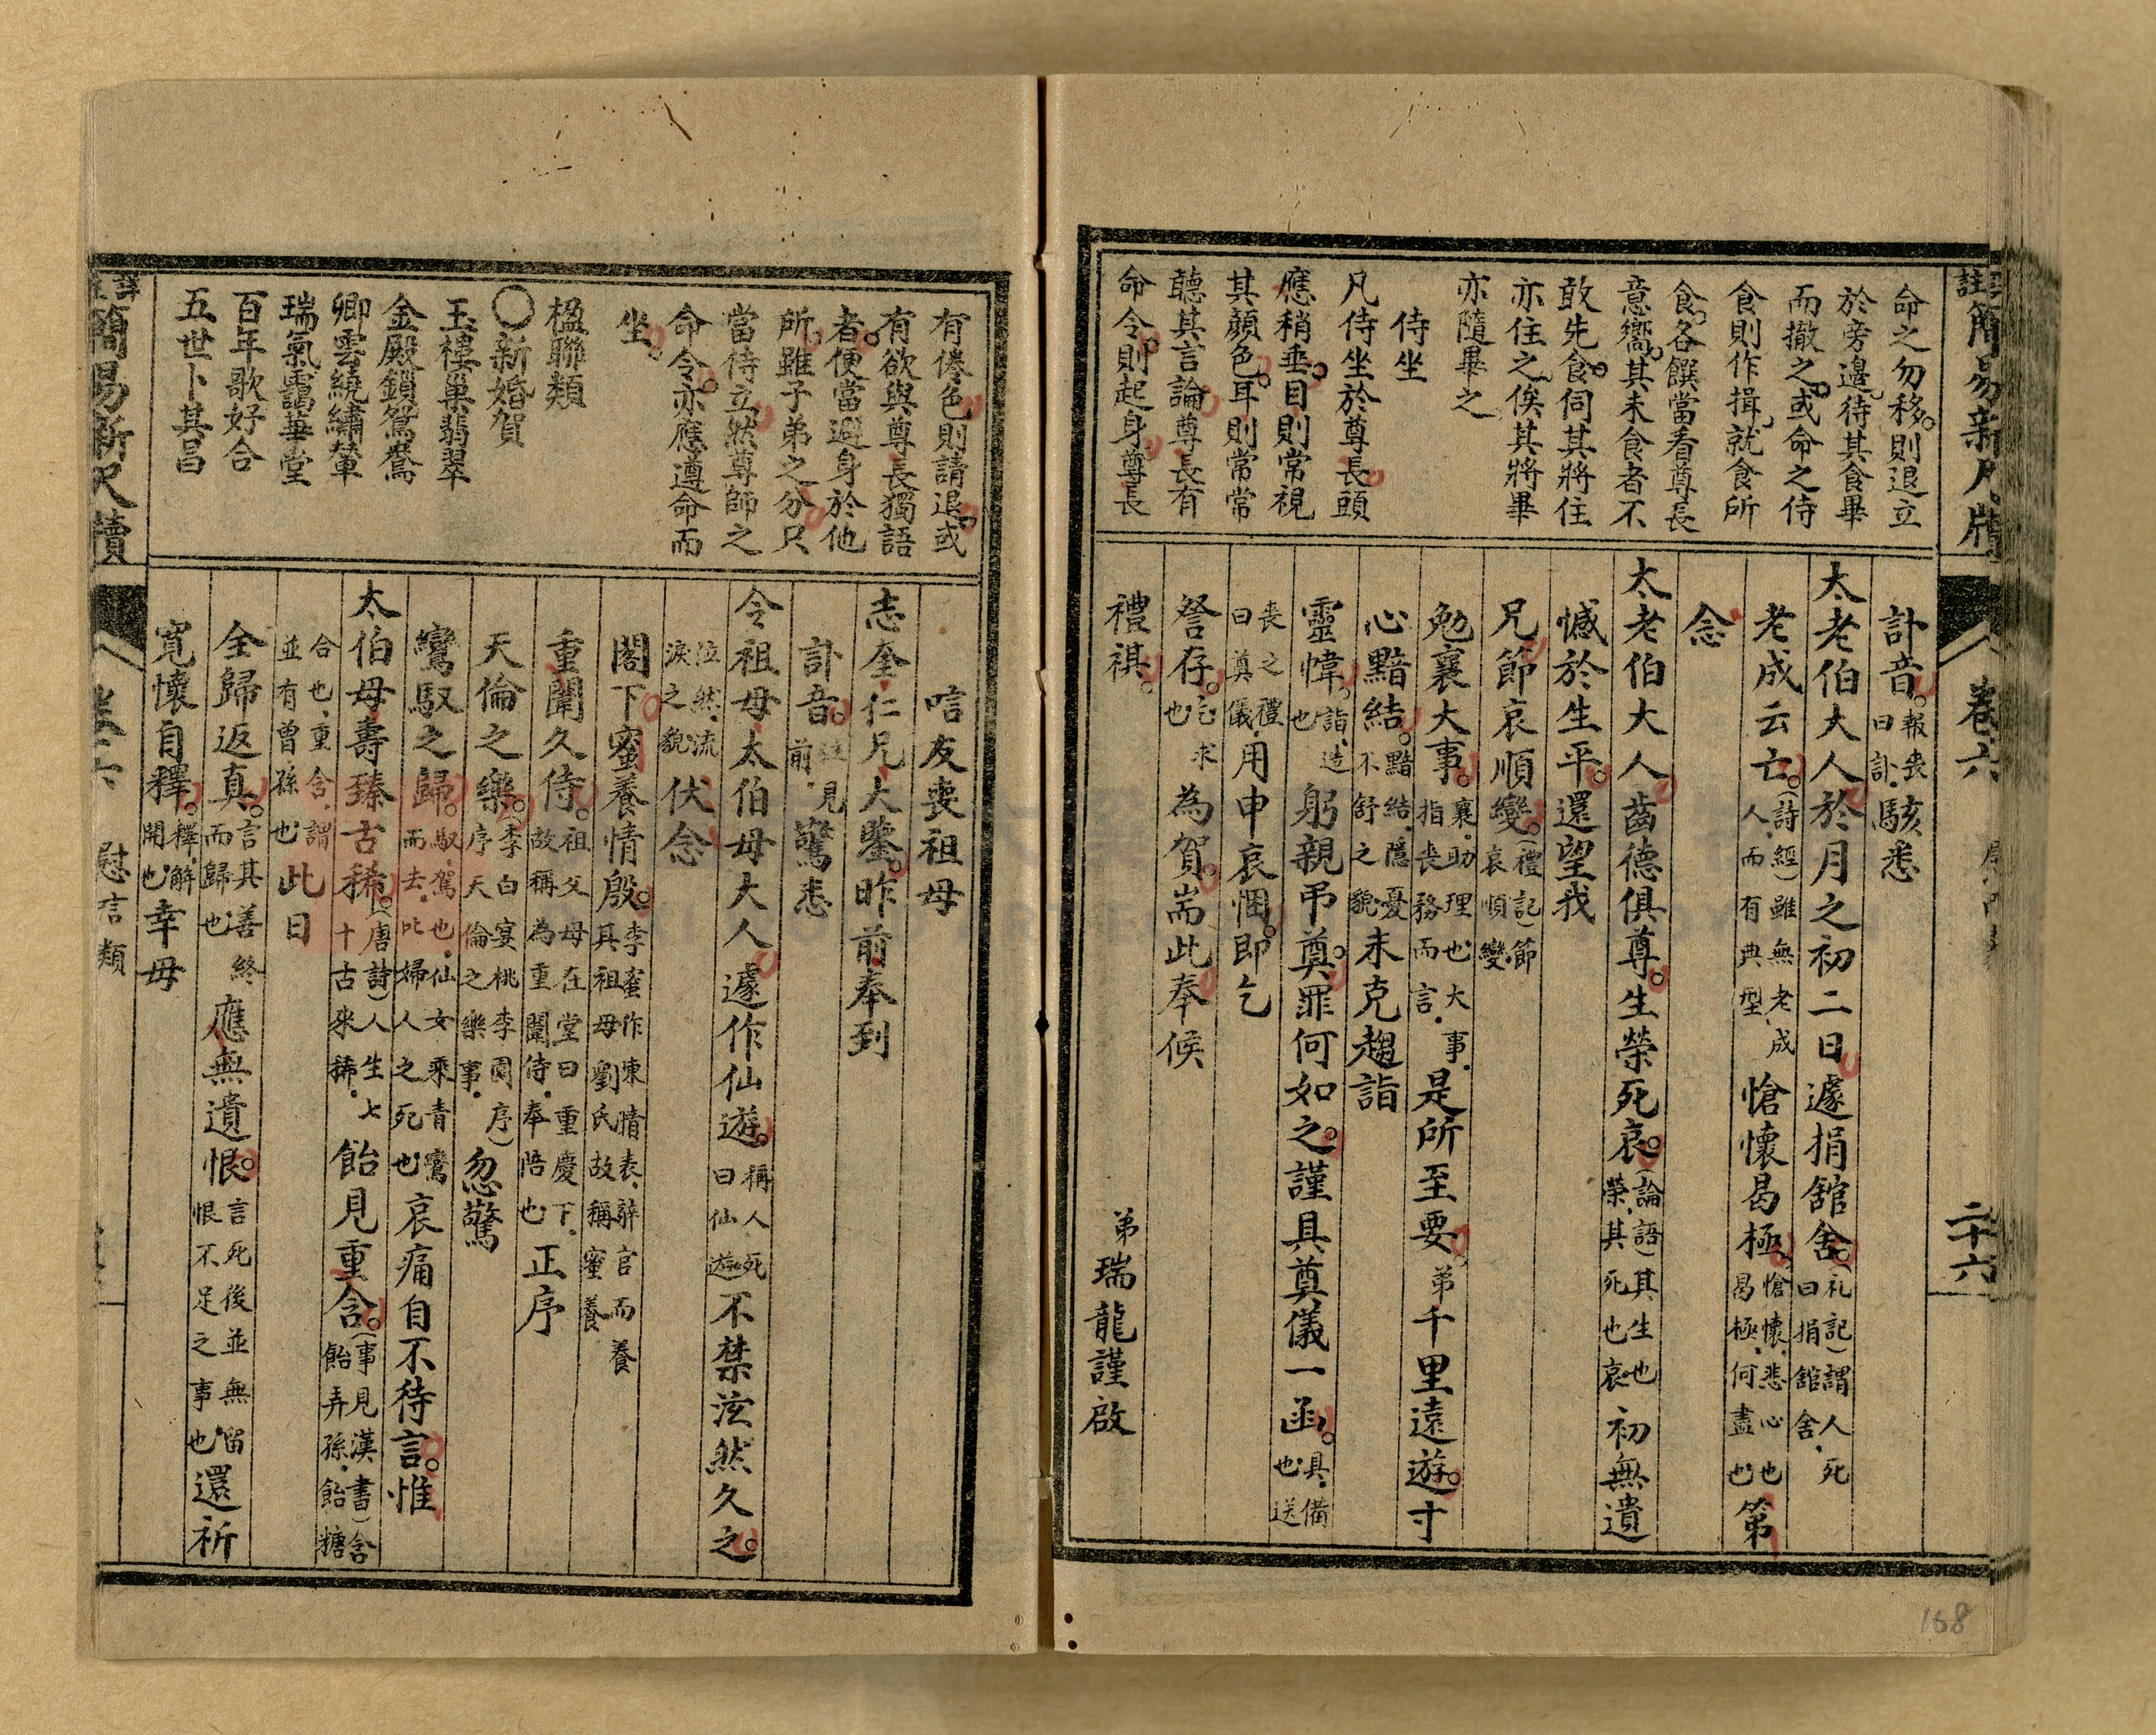 註簡易新尺牘
卷六
二十六
命之勿移。則退立
於旁邊、待其食畢
而撤之。或命之侍
食則作揖、就食所
食。各饌當看尊長
意嚮。其未食者不
敢先食。伺其將住
亦住之、俟其將畢
亦隨畢之、
侍坐
凡侍坐於尊長頭
應稍垂。目則常視
其顏色。耳則常常
聽其言論尊長有
命令。則起身。尊長
訃音。報喪曰訃、駭悉
太老伯大人於月之初二日遽捐舘舍。(礼記)謂人死曰捐舘舍、
老成云亡。(詩經)雖無老成人、而有典型、愴懷曷極。愴懷、悲心也曷極、何盡也第
念
太老伯大人齒德俱尊。生榮死哀。(論語)其生也榮、其死也哀初無遺
憾於生平。還望我
兄節哀順變。(禮記)節哀順變
勉襄大事。襄、助理也大事、指喪務而言、是所至要。弟千里遠遊。寸
心黯結。黯結、隱憂不舒之貌未克趨詣
靈幃。詣、造也躬親弔奠。罪何如之。謹具奠儀一函。具、備也送
喪之禮曰奠儀、用申哀悃。即乞
詧存。乞、求也為賀。耑此奉候
禮祺。
弟瑞龍謹啟
有倦色則請退。或
有欲與尊長獨語
者。便當避身於他
所。雖子弟之分只
當侍立。然尊師之
命令。亦應遵命而
坐。
楹聯類
〇新婚賀
玉樓巢翡翠
金殿鎖鴛鴦
卿雲繞繡輦
瑞氣靄華堂
百年歌好合
五世卜其昌
唁友喪祖母
志奎仁兄大鑒。昨前奉到
訃音。前見驚悉
令祖母太伯母大人遽作仙遊。稱人死曰仙遊不禁泫然久之。
泣然、流淚之貌伏念
閣下蜜養情殷。李蜜作東情表、辭官而養其祖母劉氏故稱蜜養
重闈久侍。祖父母在堂曰重慶下、故稱為重闈侍、奉陪也正序
天倫之樂。(李白宴桃李園序)序天倫之樂事、忽驚
鸞馭之歸。馭、駕也、仙女乘青鸞而去、比婦人之死也哀痛自不待言。惟
太伯母壽臻古稀。(唐詩)人生七十古來稀、飴見重含。(事見漢書)含飴弄孫、飴糖
合也、重含、謂並有曾孫也此日
全歸返真。言其善終而歸也應無遺恨。言死後並無留恨不足之事也還祈
寬懷自釋。釋、解開也幸毋
簡易新尺牘
卷六
慰唁類
168